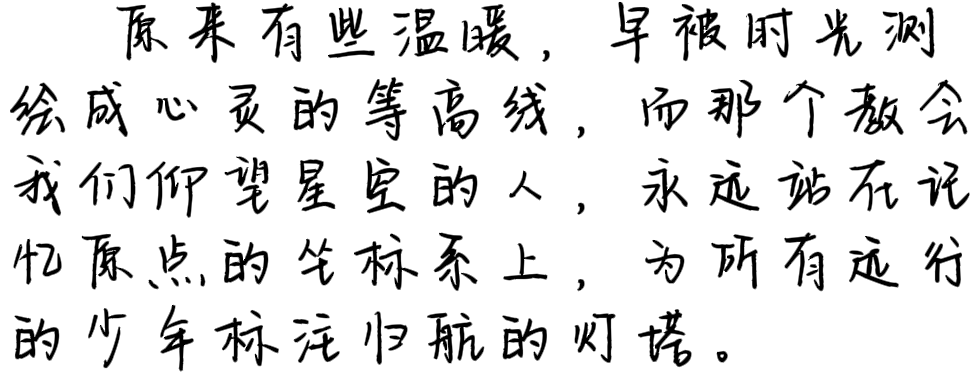 原来有些温暖，早被时光测
绘成心灵的等高线，而那个教会
我们仰望星空的人，永远站在记
忆原点的坐标系上，为所有远行
的少年标注归航的灯塔。